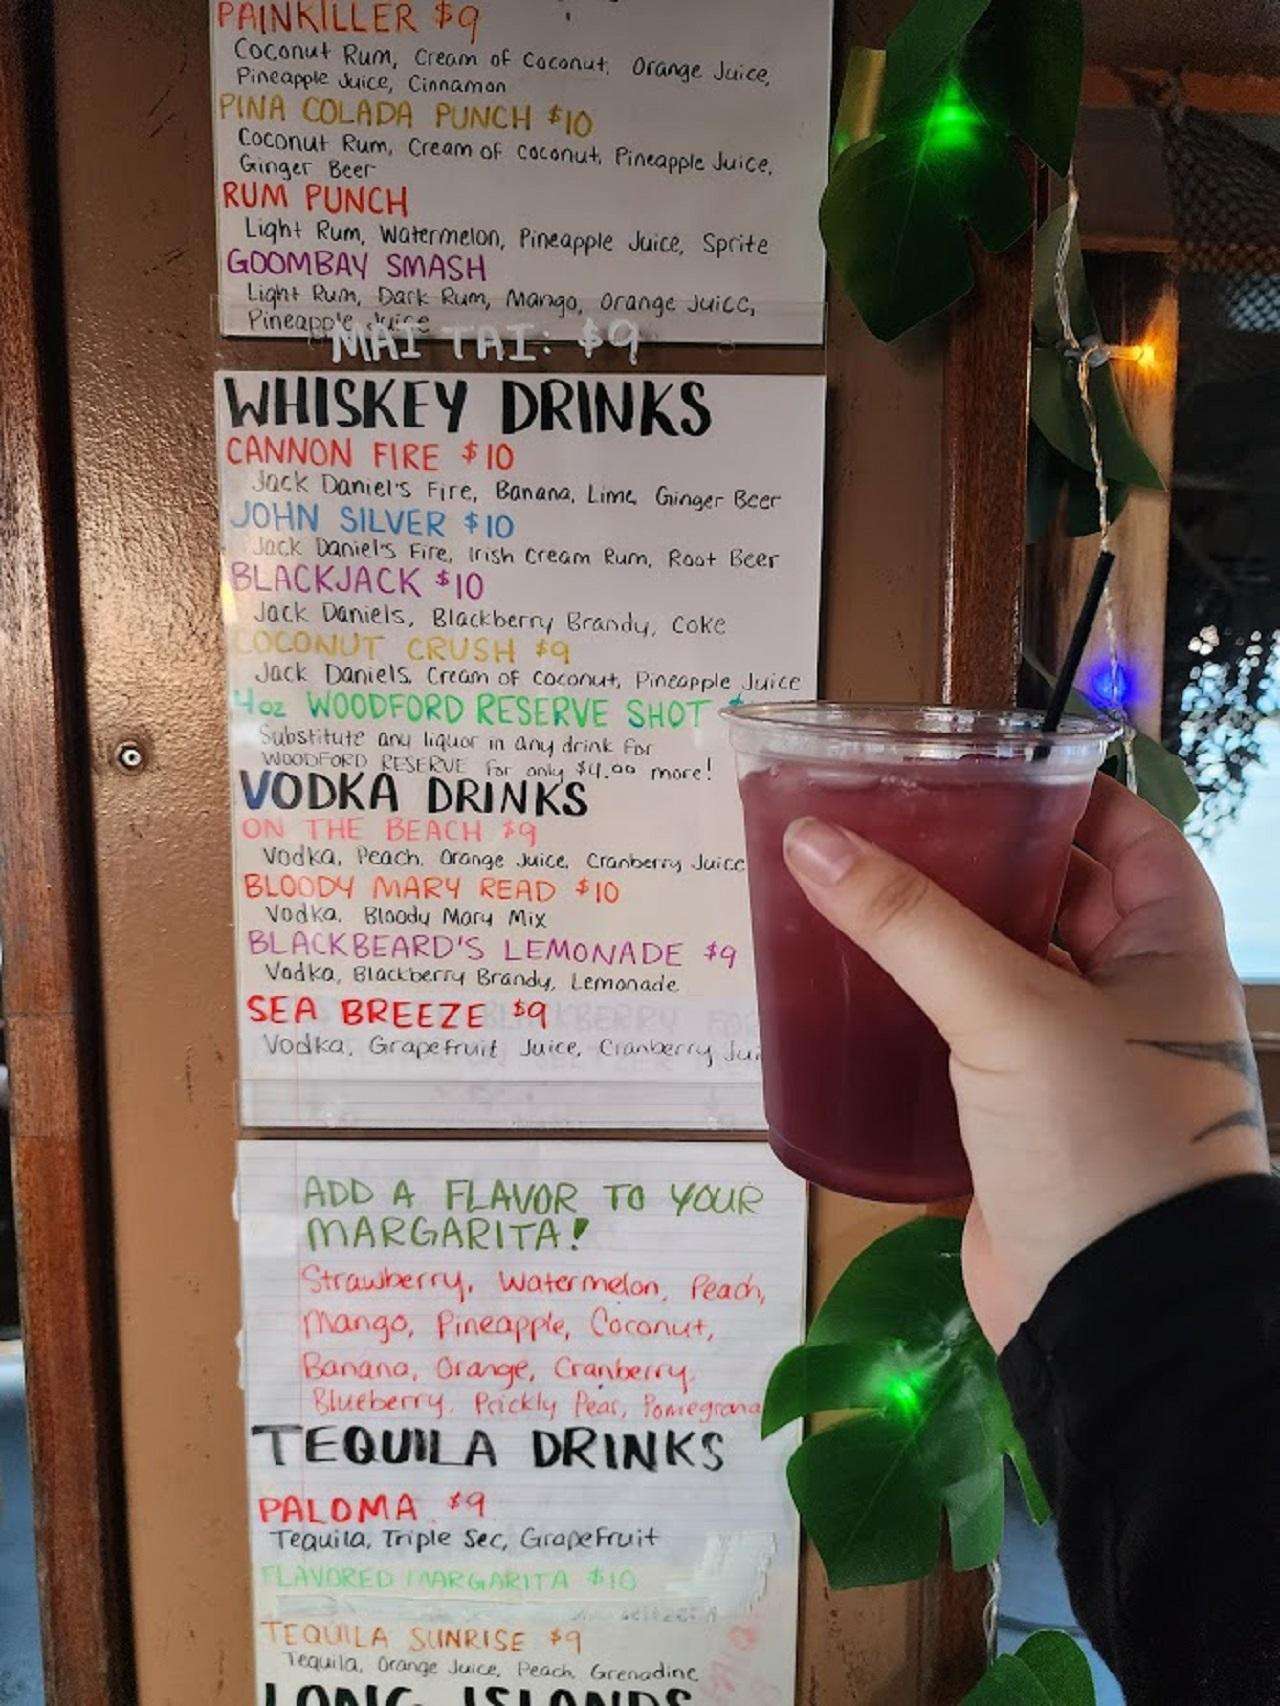 PAINKILLER $9
Coconut Rum, Cream of Coconut, Orange Juice,
Pineapple Juice, Cinnamon
PINA COLADA PUNCH $10
Coconut Rum, Cream of coconut, Pineapple Juice,
Ginger Beer
RUM PUNCH
Light Rum, Watermelon, Pineapple Juice, Sprite
GOOMBAY SMASH
Light Rum, Dark Rum, Mango, Orange Juice,
Pineapple Juice
MAI TAI: $9
WHISKEY DRINKS
CANNON FIRE $10
Jack Daniel's Fire, Banana, Lime, Ginger Beer
JOHN SILVER $10
Jack Daniel's Fire, Irish Cream Rum, Root Beer
BLACKJACK $10
Jack Daniels, Blackberry Brandy, Coke
COCONUT CRUSH $9
Jack Daniels, Cream of coconut, Pineapple Juice
4oz WOODFORD RESERVE SHOT
Substitute any liquor in any drink for
WOODFORD RESERVE for only $4.00 more!
VODKA DRINKS
ON THE BEACH $9
Vodka, Peach, Orange Juice, Cranberry Juice
BLOODY MARY READ $10
Vodka, Bloody Mary Mix
BLACKBEARD'S LEMONADE $9
Vodka, Blackberry Brandy, Lemonade
SEA BREEZE $9
Vodka, Grapefruit Juice, Cranberry Jui
ADD A FLAVOR TO YOUR
MARGARITA!
Strawberry, Watermelon, Peach,
Mango, Pineapple, Coconut,
Banana, Orange, Cranberry
Blueberry, Prickly Pear, Pomegrana
TEQUILA DRINKS
PALOMA $9
Tequila, Triple Sec, Grapefruit
FLAVORED MARGARITA $10
TEQUILA SUNRISE $9
Tequila, Orange Juice, Peach, Grenadine
LONG ISLANDS